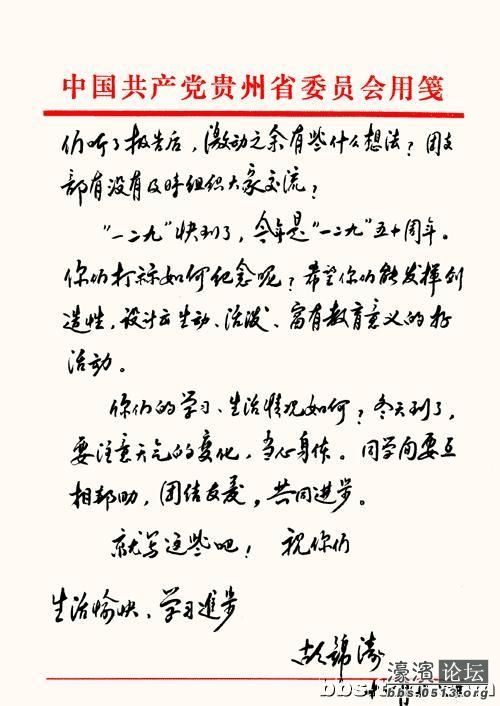 中国共产党贵州省委员会用笺
们听了报告后，激动之余有些什么想法？团支
部有没有及时组织大家交流？
“一二九”快到了，今年是“一二九”五十周年。
你们打祘如何纪念呢？希望你们能发挥创
造性，设计出生动、活泼、富有教育意义的好
活动。
你们的学习、生活情况如何？冬天到了，
要注意天气的变化，当心身体。同学间要互
相帮助，团结友爱，共同进步。
就写这些吧！ 祝你们
生活愉快、学习進步
胡錦涛
濠滨论坛
bbs.0513.org